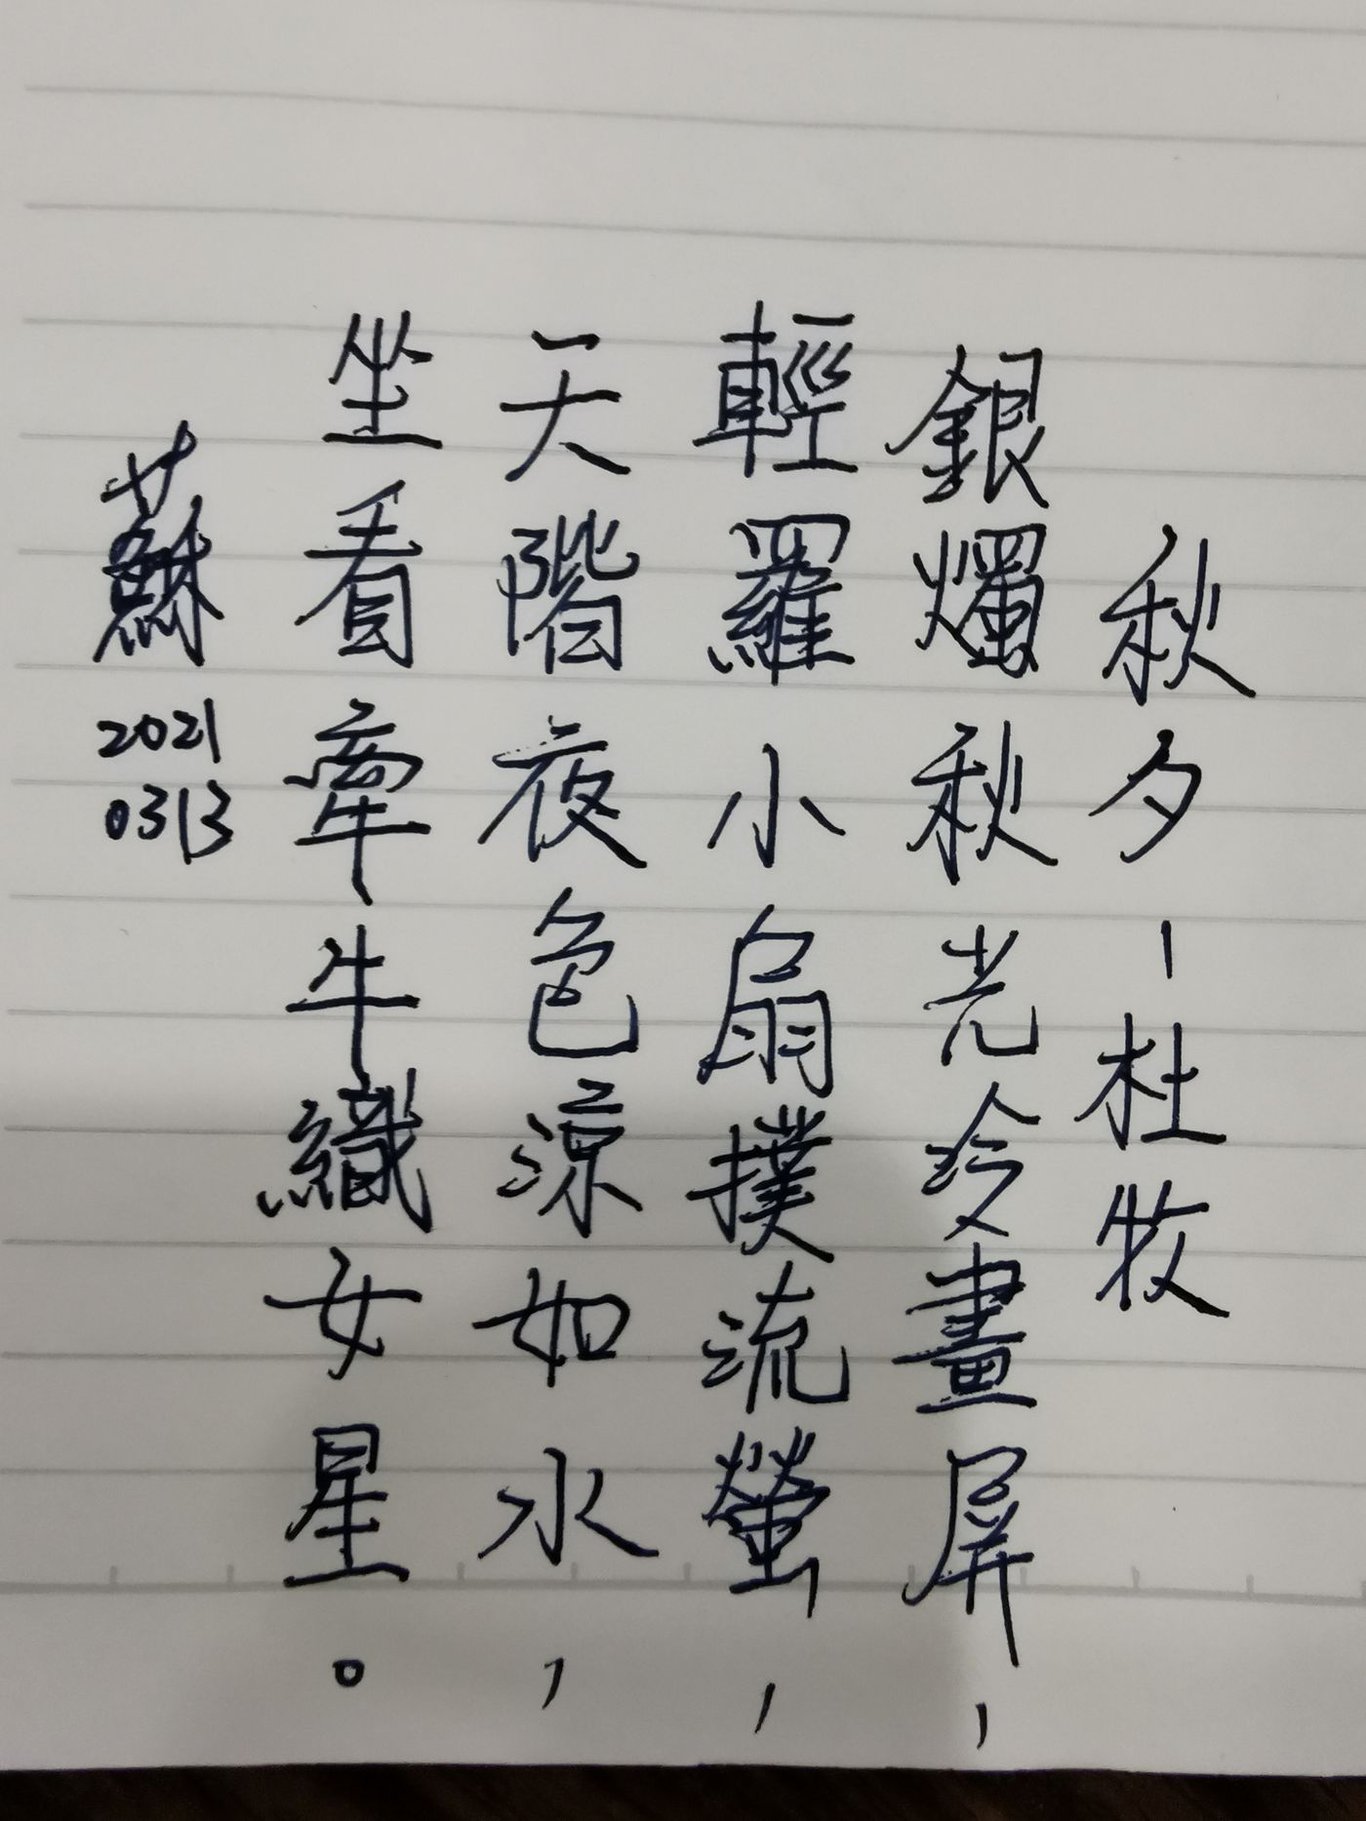 秋夕-杜牧
銀燭秋光冷畫屏，
輕羅小扇撲流螢，
天階夜色涼如水，
坐看牽牛織女星。
蘇
2021
0313